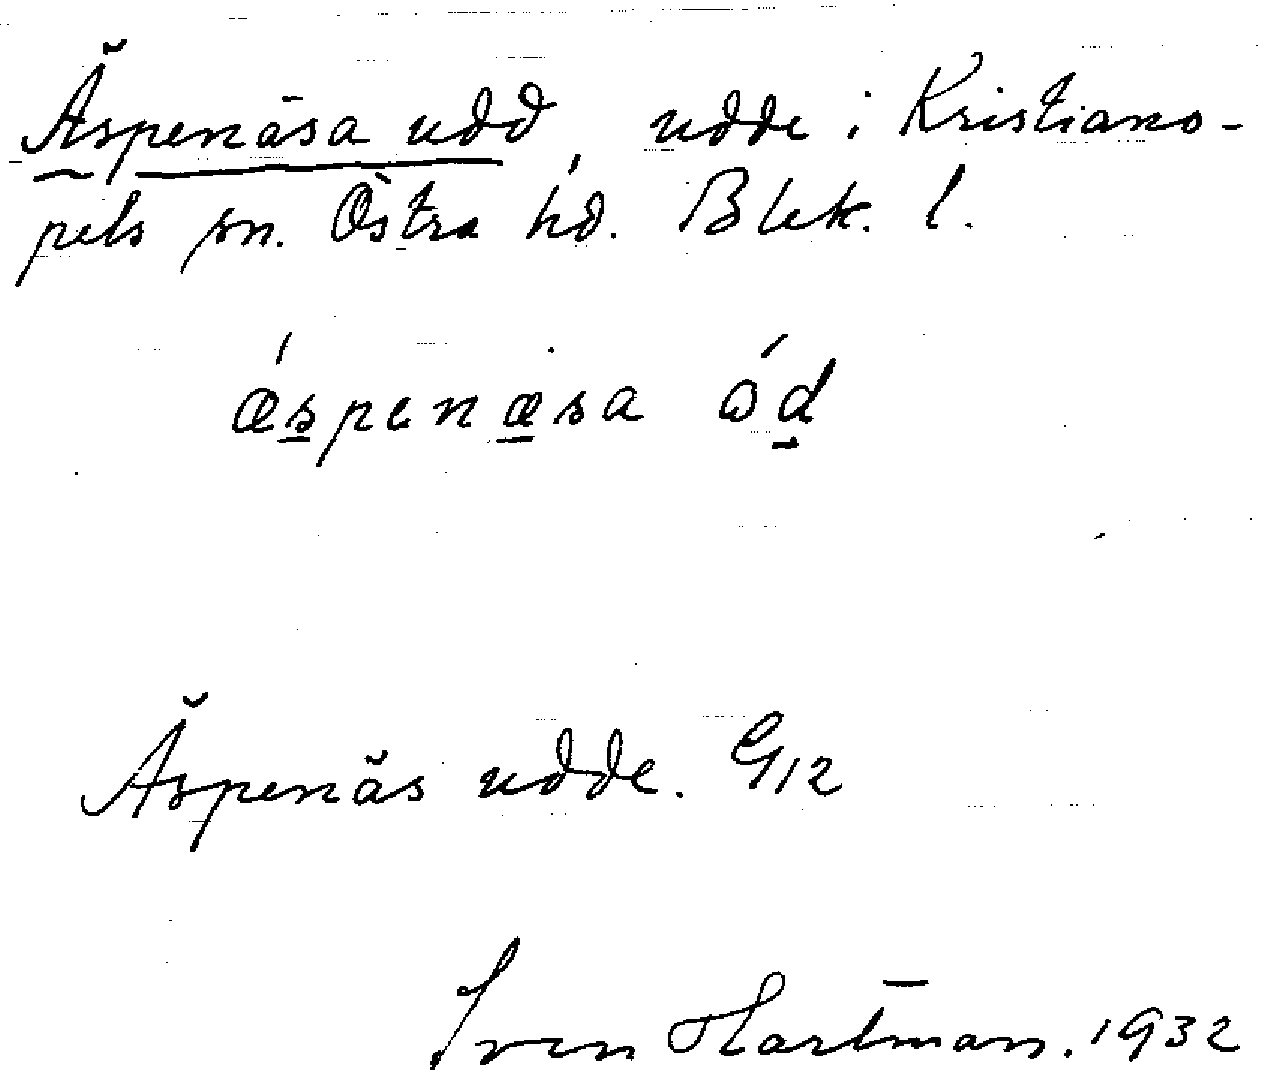 Äspenäsa udd, udde i Kristiano-
pels sn. Östra hd. Blek. l.
ǽspenæsa ód
Äspenäs udde. G12
Sven Hartman. 1932